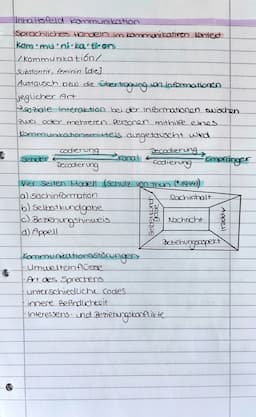 Inhaltsfeld Kommunikation
Sprachliches Handeln im kommunikativen Kontext
Kom·mu·ni·ka·tion
/Kommunikatión/
Substantiv, feminin [die]
Austausch oder die Übertragung von Informationen
jeglicher Art
*soziale Interaktion bei der Informationen zwischen
zwei oder mehreren Personen mithilfe eines
Kommunikationsmittels ausgetauscht wird
Codierung Decodierung
Sender Kanal Empfänger
Decodierung Codierung
Vier Seiten Modell (Schulz von Thun
a) Sachinformation
b) Selbstkundgabe
c) Beziehungshinweis
d) Appell
Sachinhalt
Nachricht
Beziehungsaspekt
Kommunikationsstörungen
- Umwelteinflüsse
- Art des Sprechens
- unterschiedliche Codes
- innere Befindlichkeit
- Interessens- und Beziehungskonflikte